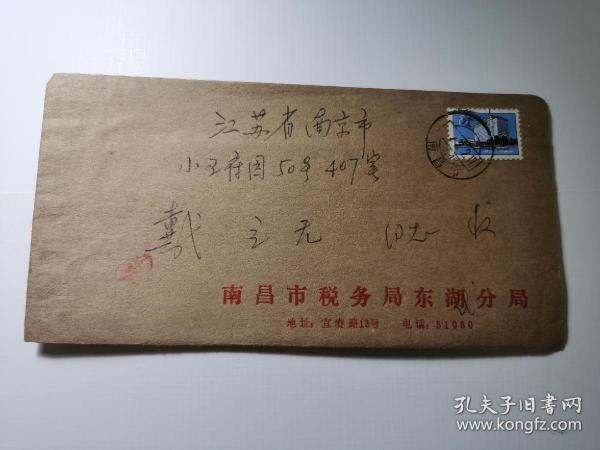 江苏省南京市
小王府园50号407室
戴立元 同志 收
南昌市税务局东湖分局
地址：宜春路13号 电话：51080
孔夫子旧书网
www.kongfz.com